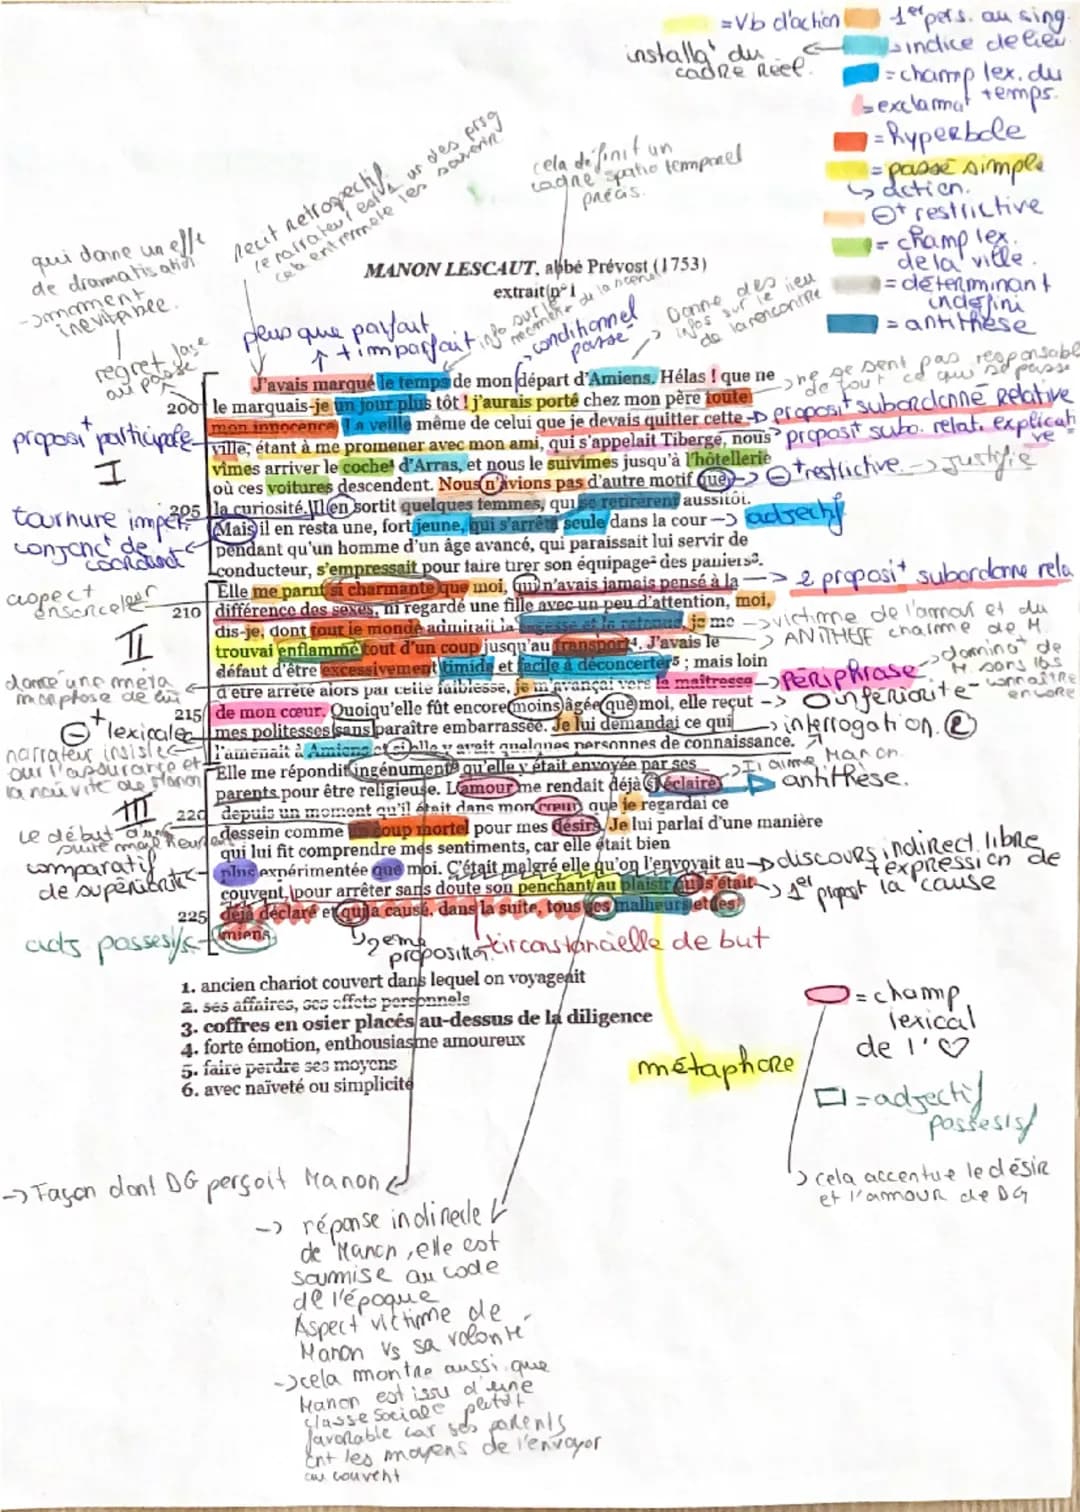 = Vb d'action
1er pers. au sing.
installa° du cadre réel.
indice de lieu
= champ lex. du temps.
= exclamat°
= hyperbole
= passé simple
↳ action.
⊖+ restrictive
= champ lex. de la ville.
= déterminant indéfini
= antithèse
récit rétrospectif
cela définit un
cadre spatio temporel
précis.
qui donne un effe
de dramatisation
→ moment
inévitable.
regret
au passé
MANON LESCAUT, abbé Prévost (1753)
extrait n°1
plus que parfait
↑ + imparfait
conditionnel
passé
Donne des
infos sur le lieu
de la rencontre
J'avais marqué le temps de mon départ d'Amiens. Hélas ! que ne
200 le marquais-je un jour plus tôt ! j'aurais porté chez mon père toute
mon innocence. La veille même de celui que je devais quitter cette
ville, étant à me promener avec mon ami, qui s'appelait Tiberge, nous
vîmes arriver le coche¹ d'Arras, et nous le suivîmes jusqu'à l'hôtellerie
où ces voitures descendent. Nous n'avions pas d'autre motif que
205 la curiosité. Il en sortit quelques femmes, qui se retirèrent aussitôt.
Mais il en resta une, fort jeune, qui s'arrêta seule dans la cour
pendant qu'un homme d'un âge avancé, qui paraissait lui servir de
conducteur, s'empressait pour faire tirer son équipage² des paniers³.
Elle me parut si charmante que moi, qui n'avais jamais pensé à la
210 différence des sexes, ni regardé une fille avec un peu d'attention, moi,
dis-je, dont tout le monde admirait la sagesse et la retenue, je me
trouvai enflammé tout d'un coup jusqu'au transport⁴. J'avais le
défaut d'être excessivement timide et facile à déconcerter⁵ ; mais loin
d'être arrêté alors par cette faiblesse, je m'avançai vers la maîtresse
215 de mon cœur. Quoiqu'elle fût encore moins âgée que moi, elle reçut
mes politesses sans paraître embarrassée. Je lui demandai ce qui
l'amenait à Amiens et si elle y avait quelques personnes de connaissance.
Elle me répondit ingénument⁶ qu'elle y était envoyée par ses
parents pour être religieuse. L'amour me rendait déjà si éclairé
220 depuis un moment qu'il était dans mon cœur, que je regardai ce
dessein comme un coup mortel pour mes désirs. Je lui parlai d'une manière
qui lui fit comprendre mes sentiments, car elle était bien
plus expérimentée que moi. C'était malgré elle qu'on l'envoyait au
couvent, pour arrêter sans doute son penchant au plaisir qui s'était
225 déjà déclaré et qui a causé, dans la suite, tous ses malheurs et les
miens.
→ ne se sent pas responsable
de tout ce qui se passe
→ proposit° subordonné relative
proposit subo. relat. explicative
→ ⊖+ restrictive. → Justifie
→ adjectif
→ 2 proposi+ subordonne rela
→ victime de l'amour et du
charme de M.
→ ANITHESE
→ PÉRIPHRASE
→ ⊖ infériorité
→ interrogation. ②
→ Il aime Manon.
antithèse.
→ discours indirect libre
+ expression de
la cause
→ 1er propost
proposi+ participale
I
tournure imper.
conjonc° de
coordinat
aspect
II
⊖+ lexicale
narrateur insiste
sur l'assurance et
la naïveté de Manon
III
comparatif
de supériorité
adts possessifs
↳ 2eme
proposition
circonstancielle de but
1. ancien chariot couvert dans lequel on voyageait
2. ses affaires, ses effets personnels
3. coffres en osier placés au-dessus de la diligence
4. forte émotion, enthousiasme amoureux
5. faire perdre ses moyens
6. avec naïveté ou simplicité
métaphore
= champ
lexical
de l'♡
= adjectif
possesisf
→ cela accentue le désir
et l'amour de DG
→ Façon dont DG perçoit Manon
→ réponse indirecte
de Manon, elle est
soumise au code
de l'époque
Aspect victime de
Manon vs sa volonté
→ cela montre aussi que
Manon est issu d'une
classe sociale plutôt
favorable car ses parents
ont les moyens de l'envoyer
au couvent